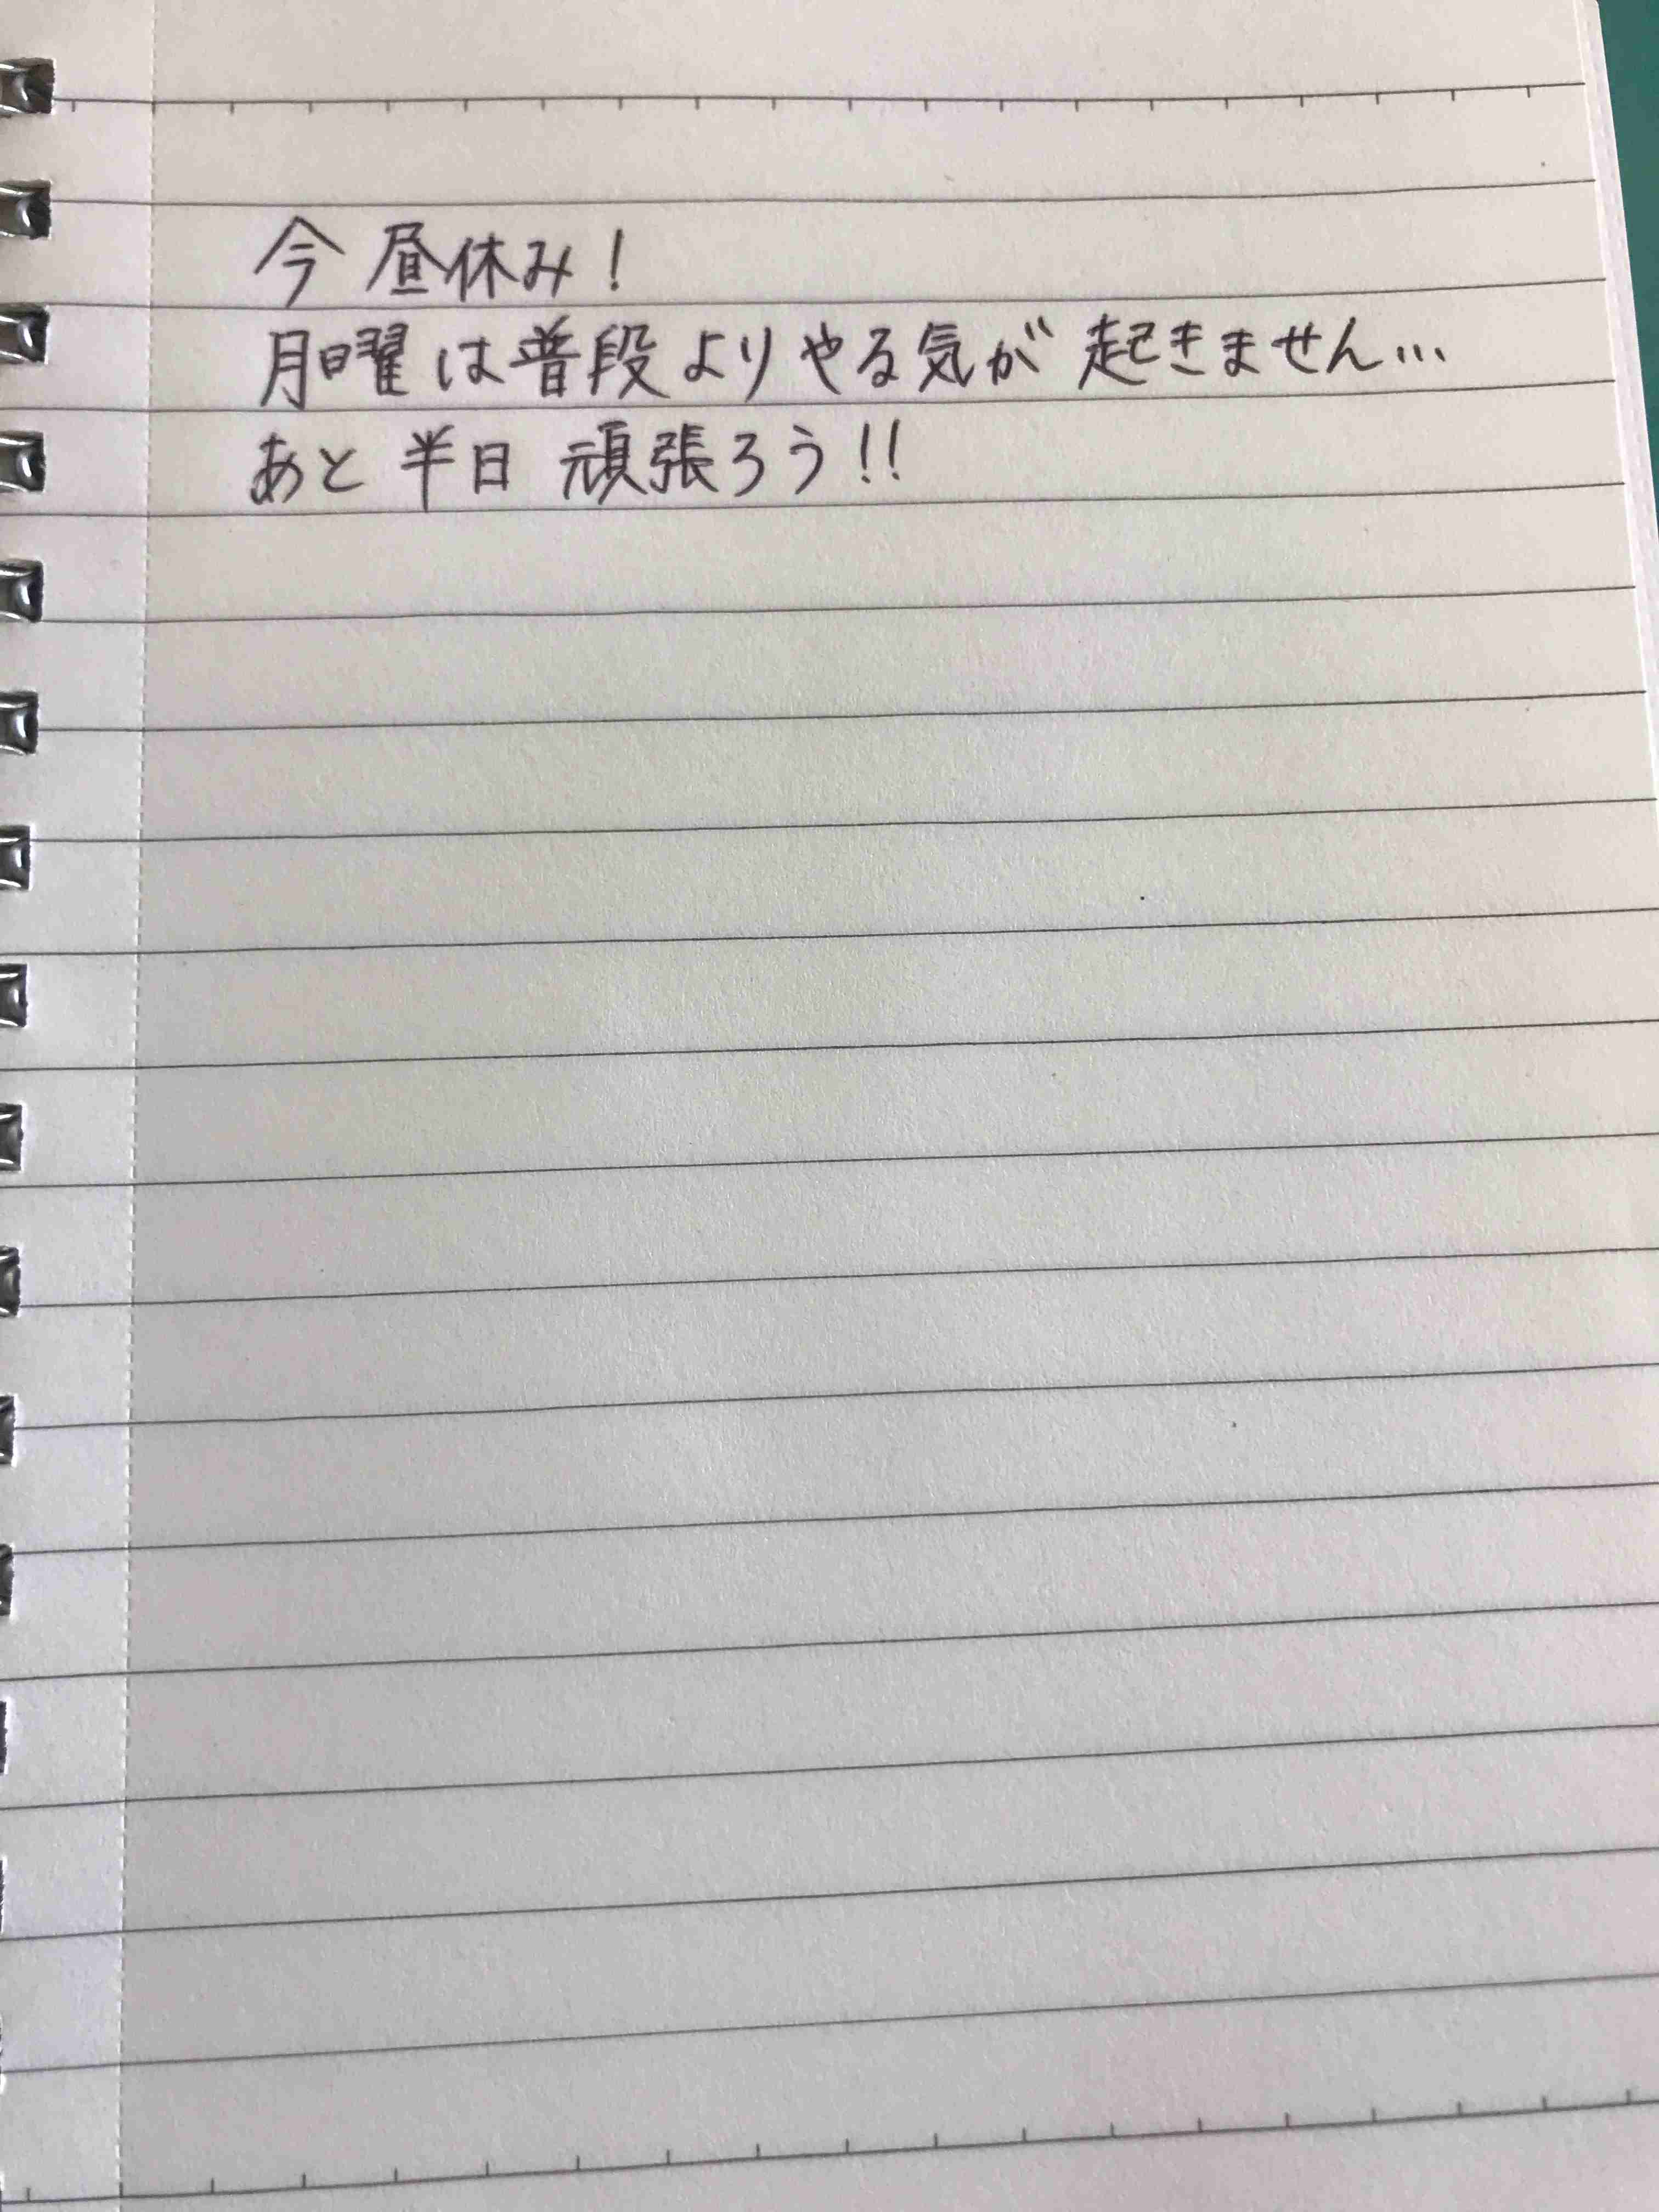 今 昼休み！
月曜は普段よりやる気が起きません…
あと半日 頑張ろう！！